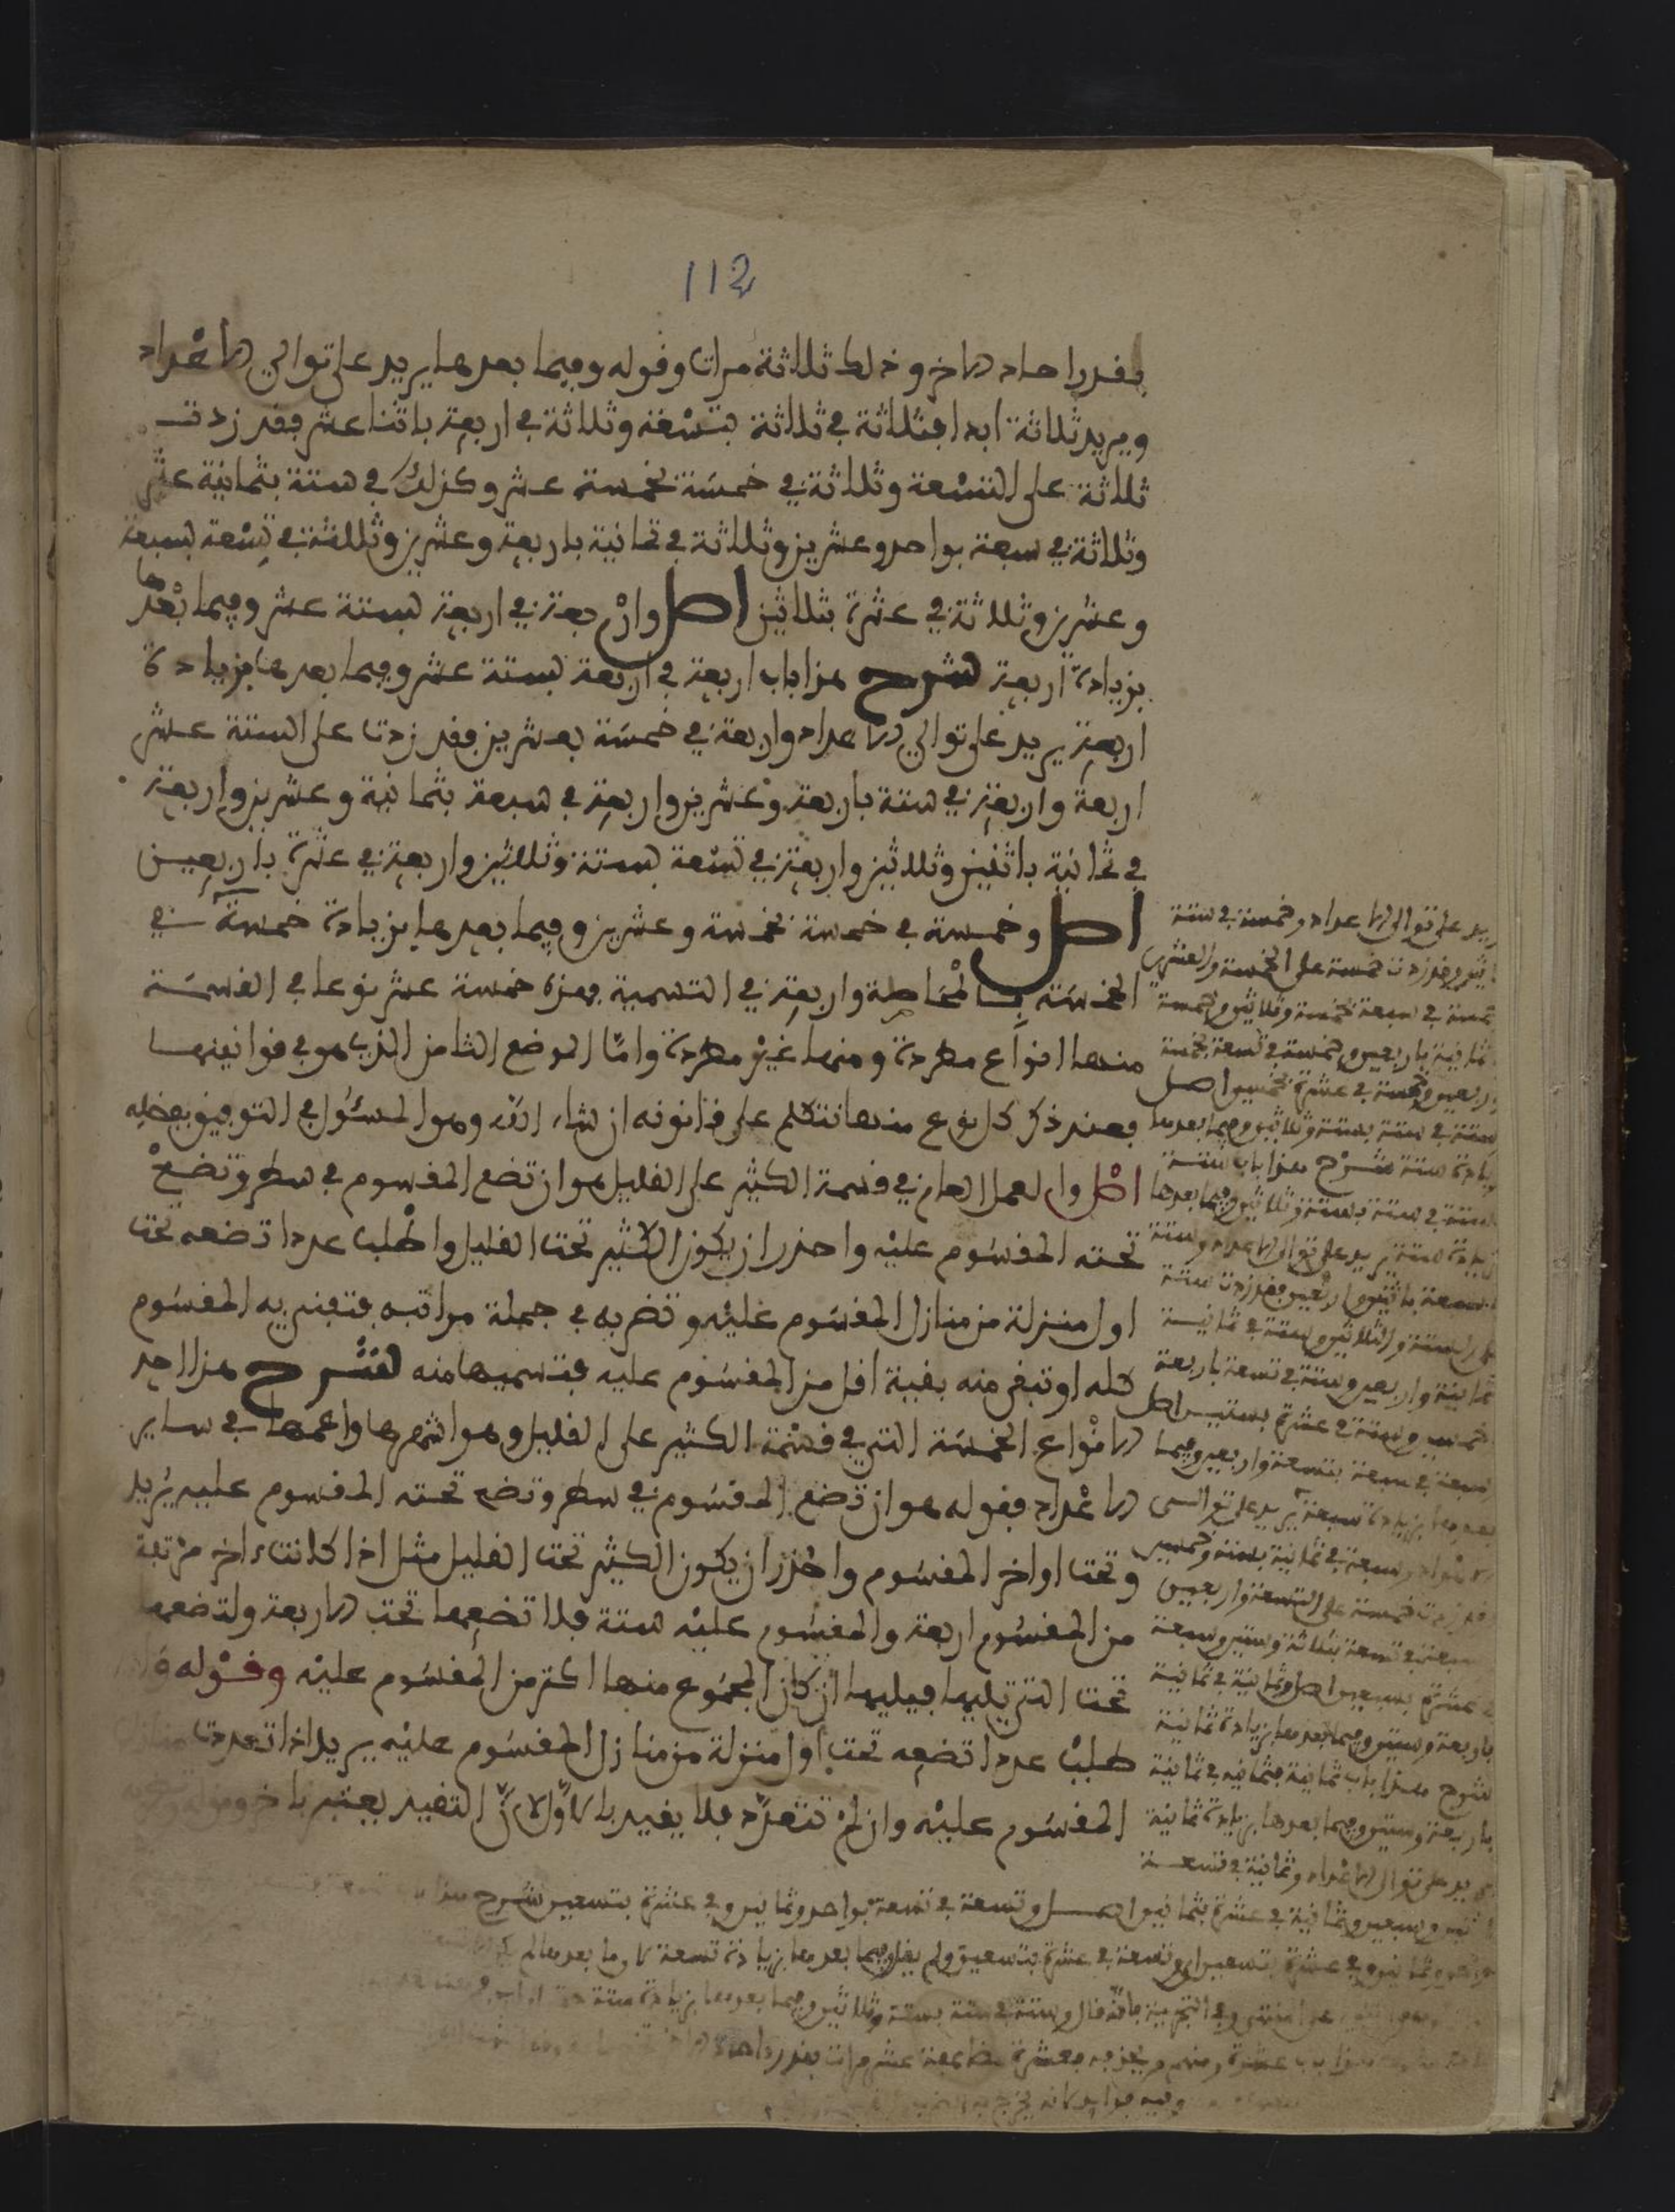 112
بقدر احاد الاخر وذلك ثلاثة مرات وقوله وفيما بعدها يريد على توالي الاعداد
ويريد ثلاثة ابدا فثلاثة في ثلاثة بتسعة وثلاثة في اربعة باثنا عشر فقد زدت
ثلاثة على التسعة وثلاثة في خمسة بخمسة عشر وكذلك في ستة بثمانية عشر
وثلاثة في سبعة بواحد وعشرين وثلاثة في ثمانية باربعة وعشرين وثلاثة في تسعة بسبعة
وعشرين وثلاثة في عشرة بثلاثين اصل واربعة في اربعة بستة عشر وفيما بعدها
بزيادة اربعة شرح هذا باب اربعة في اربعة بستة عشر وفيما بعدها بزيادة
اربعة يريد على توالي الاعداد واربعة في خمسة بعشرين فقد زدت على الستة عشر
اربعة واربعة في ستة باربعة وعشرين واربعة في سبعة بثمانية وعشرين واربعة
في ثمانية باثنين وثلاثين واربعة في تسعة بستة وثلاثين واربعة في عشرة باربعين
اصل وخمسة في خمسة بخمسة وعشرين وفيما بعدها بزيادة خمسة في
الخمسة بالمحاطة واربعة في التسمية فهذه خمسة عشر نوعا في القسمة
منها انواع مطردة ومنها غير مطردة واما الموضع الثامن الذي هو في قوانينها
فعند ذكر كل نوع منها نتكلم على قانونه ان شاء الله وهو المسئول في التوفيق بفضله
اصل والعمل العام في قسمة الكثير على القليل هو ان تضع المقسوم في سطر وتضع
تحته المقسوم عليه واحذر ان يكون الكثير تحت القليل واطلب عددا تضعه تحت
اول منزلة من منازل المقسوم عليه وتضربه في جملة مراتبه فتفني به المقسوم
كله او تبقى منه بقية اقل من المقسوم عليه فتسميها منه الشرح هذا احد
الانواع الخمسة التي في قسمة الكثير على القليل وهو اشهرها واعمها في ساير
الاعداد فقوله هو ان تضع المقسوم في سطر وتضع تحته المقسوم عليه يريد
وتحت اواخر المقسوم واحذر ان يكون الكثير تحت القليل مثل اذا كانت اخر مرتبة
من المقسوم اربعة والمقسوم عليه ستة فلا تضعها تحت الاربعة ولتضعها
تحت التي تليها فيليها ان كان المجموع منها اكثر من المقسوم عليه وقوله
طلب عددا تضعه تحت اول منزلة من منازل المقسوم عليه يريد اذا تعددت منازل
المقسوم عليه وان لم تتعدد فلا يفيد بالاول لان التقييد يعتبر باخر
يريد على توالي الاعداد وخمسة في ستة
فقد زدت خمسة على الخمسة والعشرين
خمسة في سبعة بخمسة وثلاثين وخمسة
ثمانية باربعين وخمسة في تسعة بخمسة
واربعين وخمسة في عشرة بخمسين اصل
ستة في ستة بستة وثلاثين وفيما بعدها
بزيادة ستة شرح هذا باب ستة
ستة في ستة بستة وثلاثين وفيما بعدها
بزيادة ستة يريد على توالي الاعداد وستة
في سبعة باثنين واربعين فقد زدت ستة
على الستة والثلاثين وستة في ثمانية
بثمانية واربعين وستة في تسعة باربعة
خمسين وستة في عشرة بستين اصل
سبعة في سبعة بتسعة واربعين وفيما
بعدها بزيادة سبعة يريد على توالي
الاعداد وسبعة في ثمانية بستة وخمسين
فقد زدت خمسة على التسعة واربعين
سبعة في تسعة بثلاثة وستين وسبعة
في عشرة بسبعين اصل وثمانية في ثمانية
باربعة وستين وفيما بعدها بزيادة ثمانية
شرح هذا باب ثمانية فثمانية في ثمانية
باربعة وستين وفيما بعدها بزيادة ثمانية
يريد على توالي الاعداد وثمانية في تسعة
باثنين وسبعين وثمانية في عشرة بثمانين اصل وتسعة في تسعة بواحد وثمانين وفي عشرة بتسعين شرح
وثمانين وفي عشرة بتسعين وتسعة في عشرة بتسعين ولم يقل وفيما بعدها بزيادة تسعة لان ما بعدها لم
قال وستة في ستة بستة وثلاثين وفيما بعدها بزيادة ستة
باب عشرة عشر مرات بقدر احاد